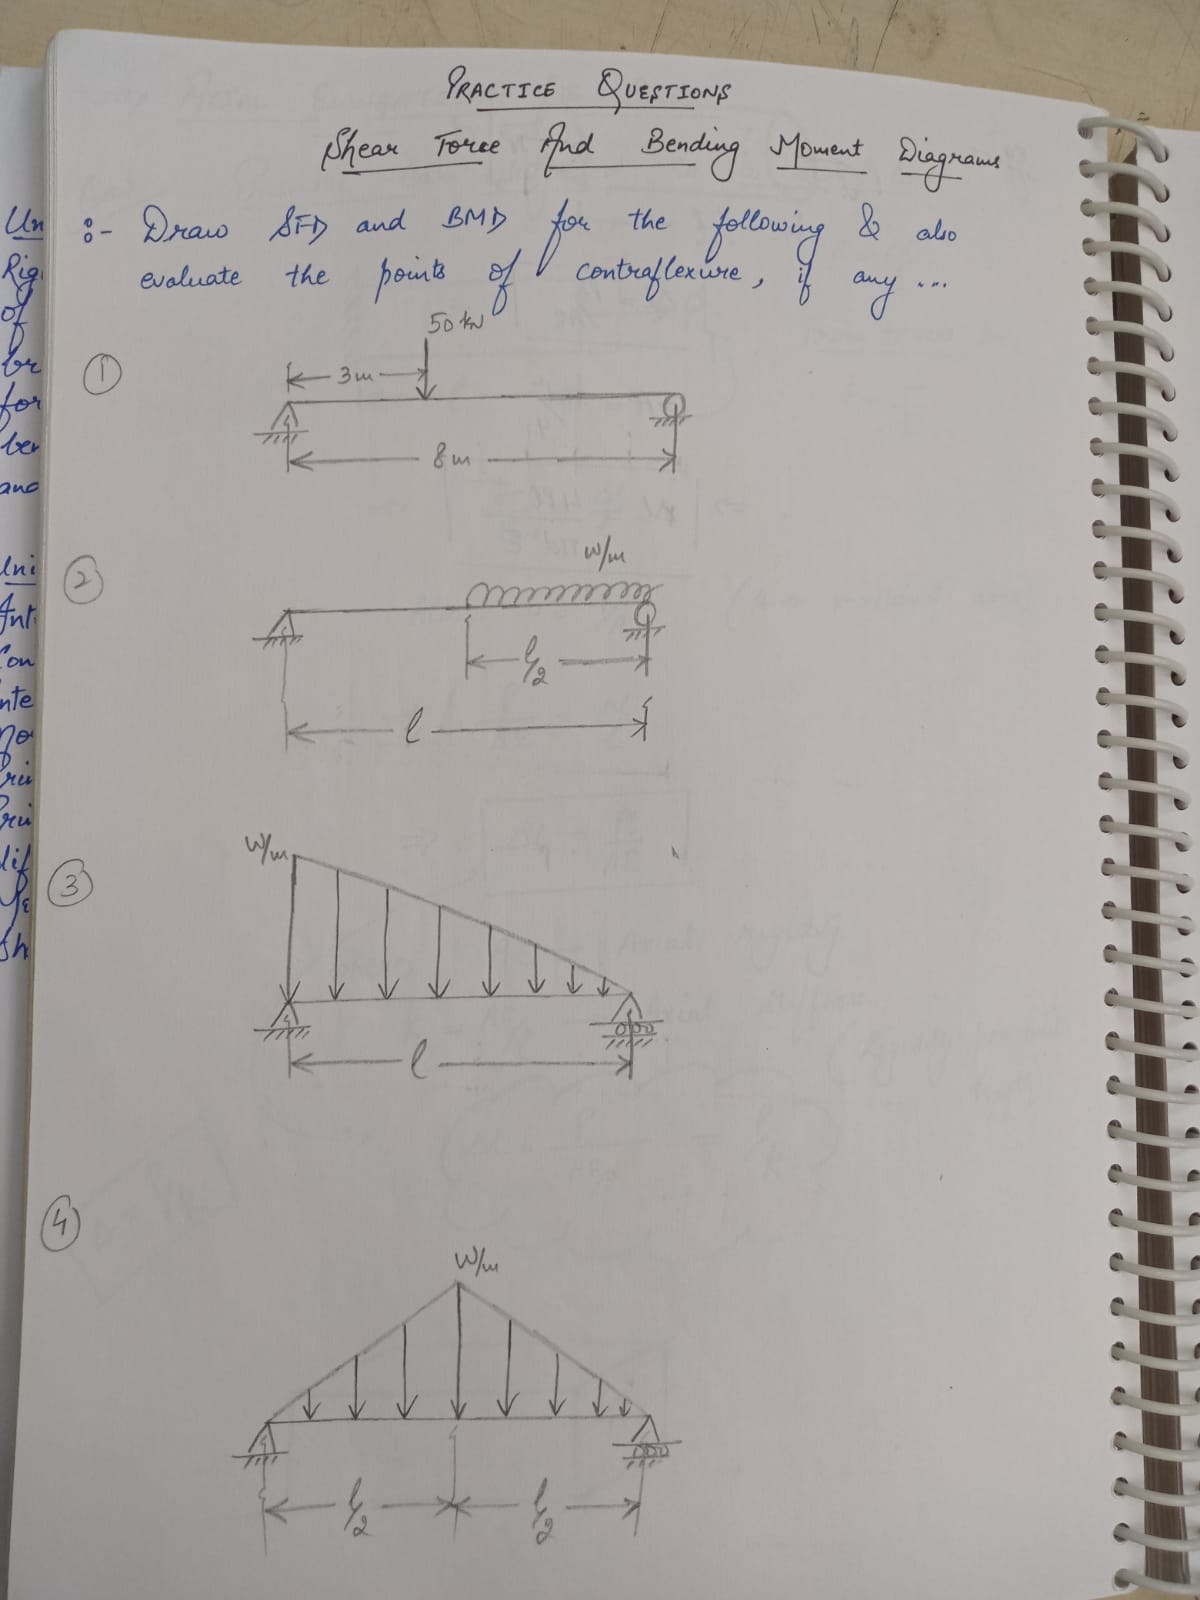 PRACTICE QUESTIONS
Shear Force And Bending Moment Diagrams
:- Draw SFD and BMD for the following & also
evaluate the points of contraflexure, if any ...
①
50 kN
3m
8m
②
W/m
l/2
l
③
W/m
l
④
W/m
l/2 l/2
Un
Rig
of
be
for
ber
and
Uni
Int
Con
nte